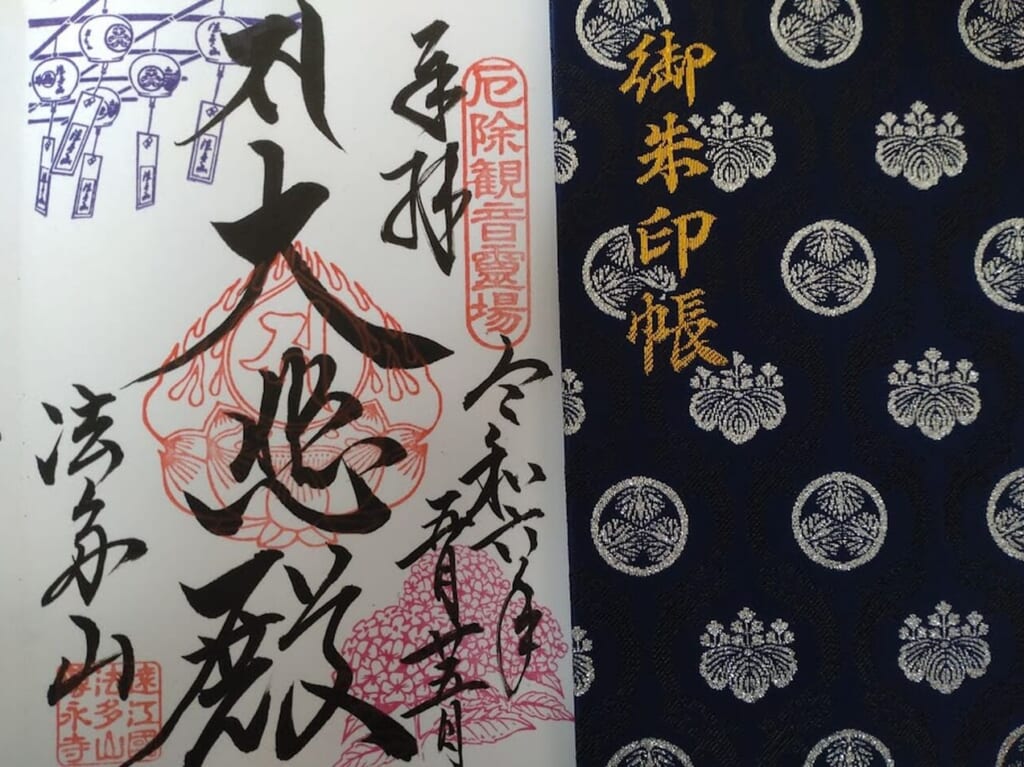 奉拝
厄除観音靈場
令和六年
五月廿五日
大悲殿
法多山
遠江國
法多山
尊永寺
御朱印帳